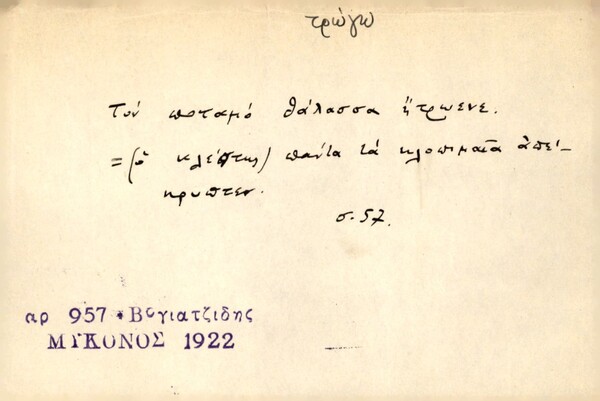 τρώγω
Τον ποταμό θάλασσα ἤτρωενε.
=(ὁ κλέφτης) πάντα τά κλοπιμαῖα ἀπέ-
κρυπτεν.
σ. 57.
αρ 957 Βογιατζιδης
ΜΥΚΟΝΟΣ 1922